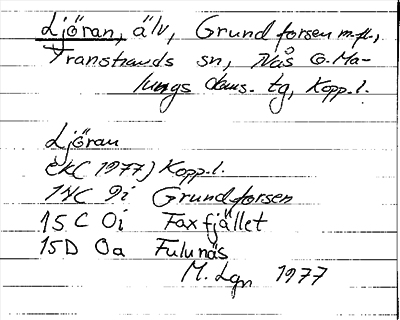 Ljöran, älv, Grundforsen m.fl.,
Transtrands sn, Nås o. Ma-
lungs doms. tg, Kopp.l.
Ljöran
EK (1977) Kopp.l.
14C 9i Grundforsen
15 C 0i Faxfjället
15D 0a Fulunäs
M. Lgn 1977